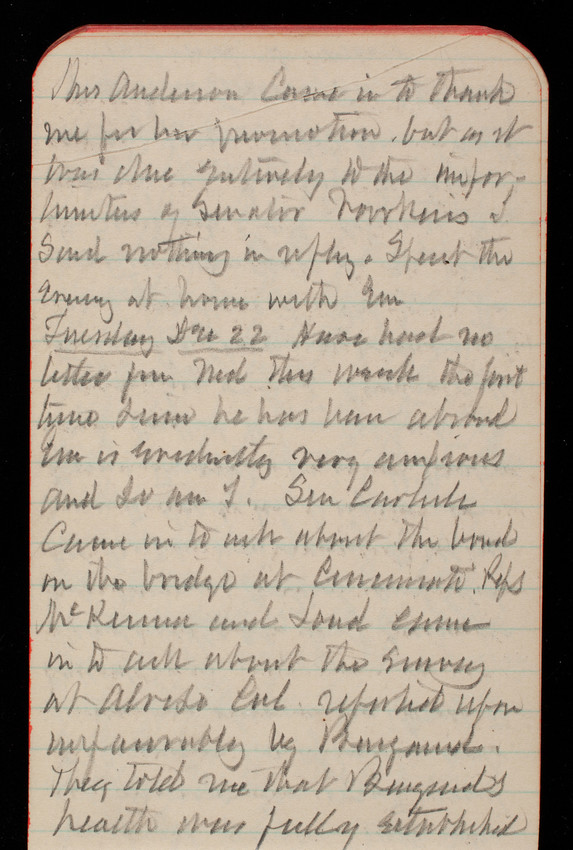 Thos Anderson Came in to thank
me for his promotion. but as it
was due entirely to the impor-
tunities of Senator Voorhees I
Said nothing in reply. Spent the
Evening at home with Em
Tuesday Dec 22 Have had no
letter from Ned this week the first
time Since he has been abroad
Em is evidently very anxious
and So am I. Sen Carlisle
Came in to ask about the bond
on the bridge at Cincinnati. Reps
McKenna and Loud came
in to ask about the Survey
at Alviso Cal. reported upon
unfavorably by Benyaurd.
They told me that Benyaurds
health was fully established